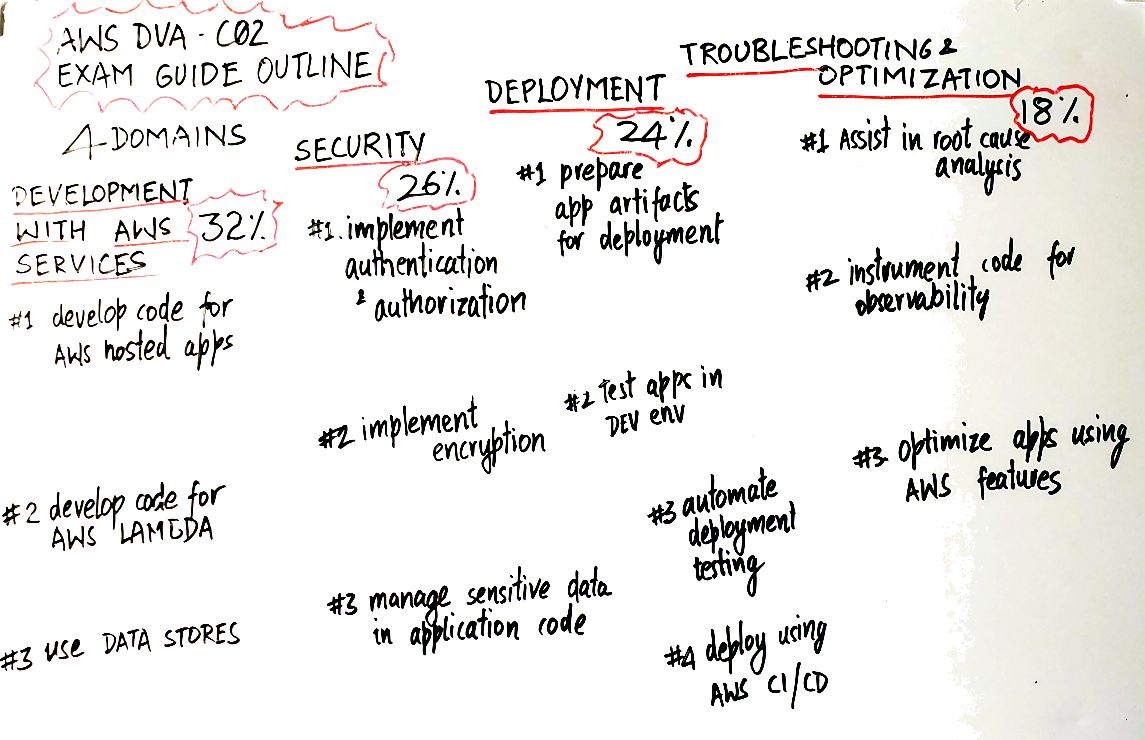 AWS DVA - C02
EXAM GUIDE OUTLINE
4 DOMAINS
DEVELOPMENT
WITH AWS
SERVICES
32%
#1 develop code for
AWS hosted apps
#2 develop code for
AWS LAMBDA
#3 use DATA STORES
SECURITY
26%
#1. implement
authentication
& authorization
#2 implement
encryption
#3 manage sensitive data
in application code
DEPLOYMENT
24%
#1 prepare
app artifacts
for deployment
#2 Test apps in
DEV env
#3 automate
deployment
testing
#4 deploy using
AWS CI/CD
TROUBLESHOOTING &
OPTIMIZATION
18%
#1 Assist in root cause
analysis
#2 instrument code for
observability
#3 optimize apps using
AWS features